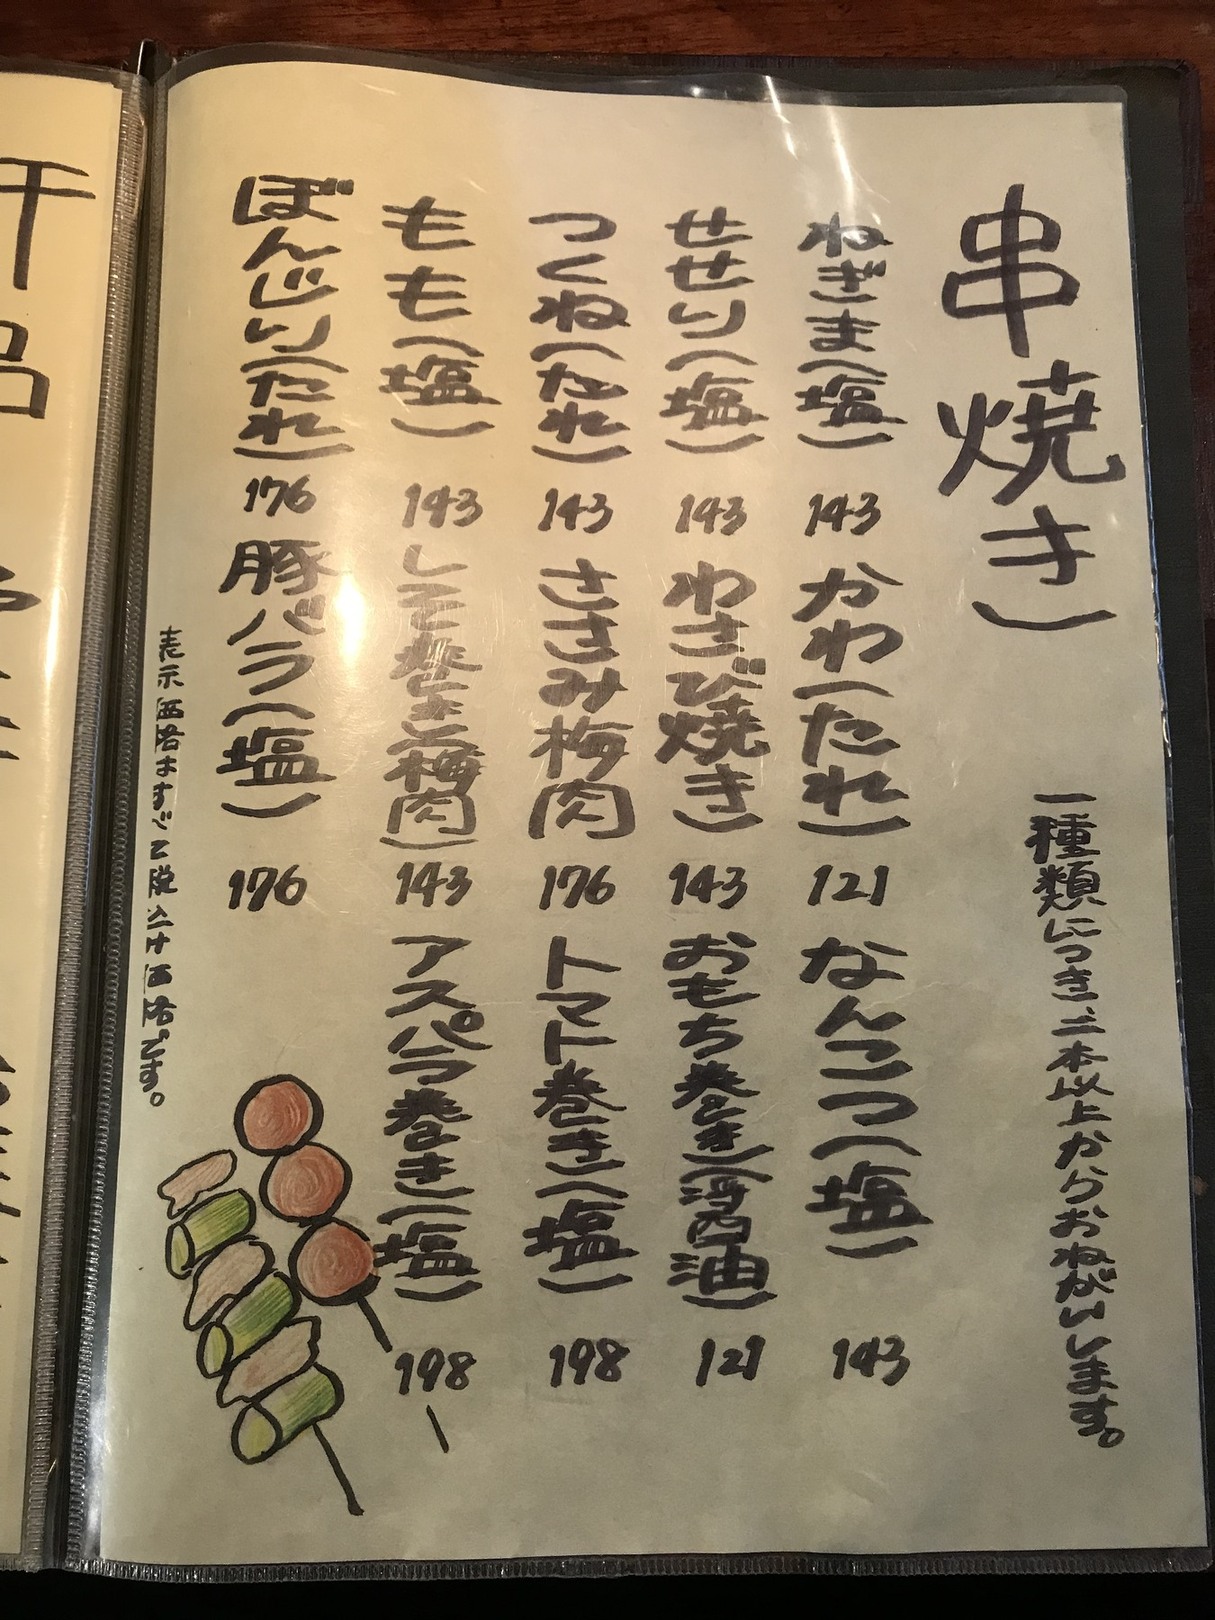 串焼き
一種類につき、二本以上からおねがいします。
ねぎま(塩) 143
かわ(たれ) 121
なんこつ(塩) 143
せせり(塩) 143
わさび焼き 143
おもち巻き(醤油) 121
つくね(たれ) 143
ささみ梅肉 176
トマト巻き(塩) 198
もも(塩) 143
しそ巻き(梅肉) 143
アスパラ巻き(塩) 198
ぼんじり(たれ) 176
豚バラ(塩) 176
表示価格はすべて税込み価格です。